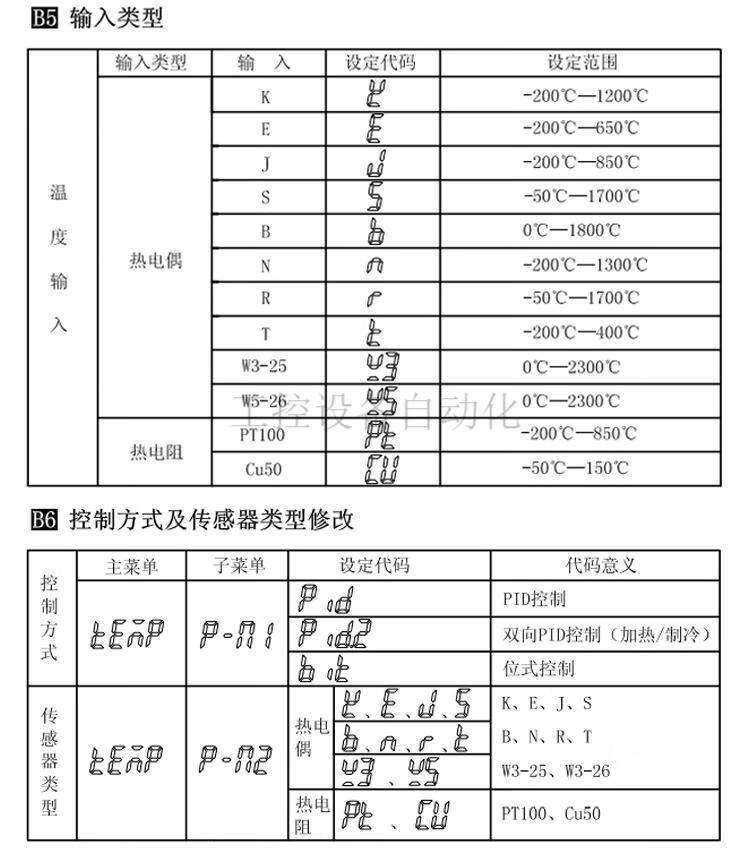 B5 输入类型
输入类型 输 入 设定代码 设定范围
温度输入
热电偶
K K -200℃—1200℃
E E -200℃—650℃
J J -200℃—850℃
S S -50℃—1700℃
B b 0℃—1800℃
N n -200℃—1300℃
R r -50℃—1700℃
T t -200℃—400℃
W3-25 y3 0℃—2300℃
W5-26 y5 0℃—2300℃
热电阻
PT100 Pt -200℃—850℃
Cu50 CU -50℃—150℃
工控设备自动化
B6 控制方式及传感器类型修改
主菜单 子菜单 设定代码 代码意义
控制方式
tEMP P-M1
Pid PID控制
Pid2 双向PID控制（加热/制冷）
bit 位式控制
传感器类型
tEMP P-M2
热电偶
K、E、J、S K、E、J、S
b、n、r、t B、N、R、T
y3、y5 W3-25、W3-26
热电阻
Pt、CU PT100、Cu50